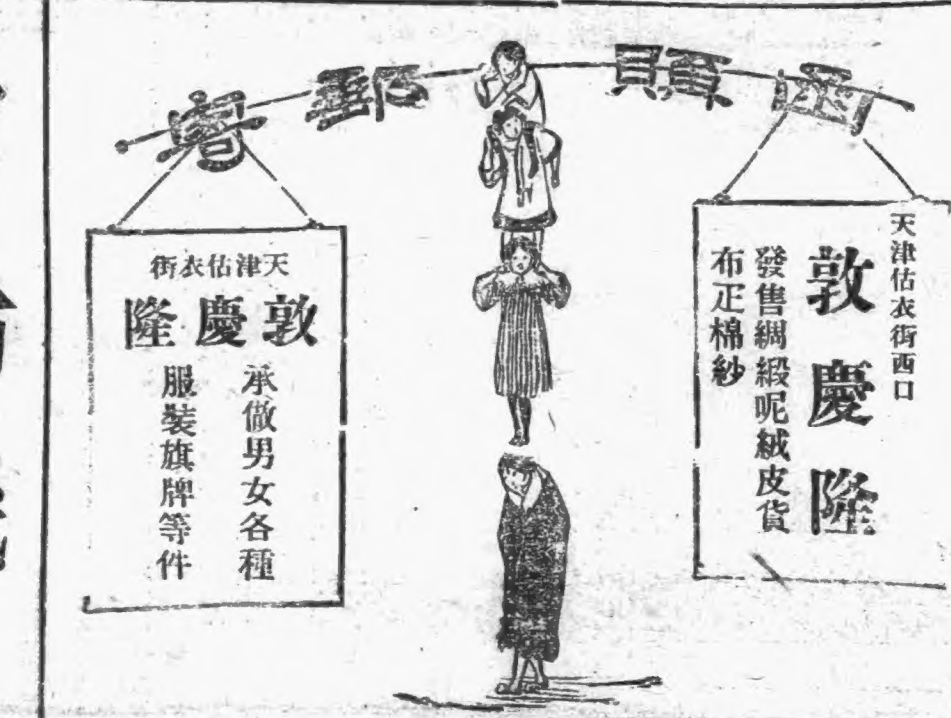 函購郵寄
天津估衣街西口
敦慶隆
發售綢緞呢絨皮貨
布疋棉紗
天津估衣街
敦慶隆
承做男女各種
服裝旗牌等件